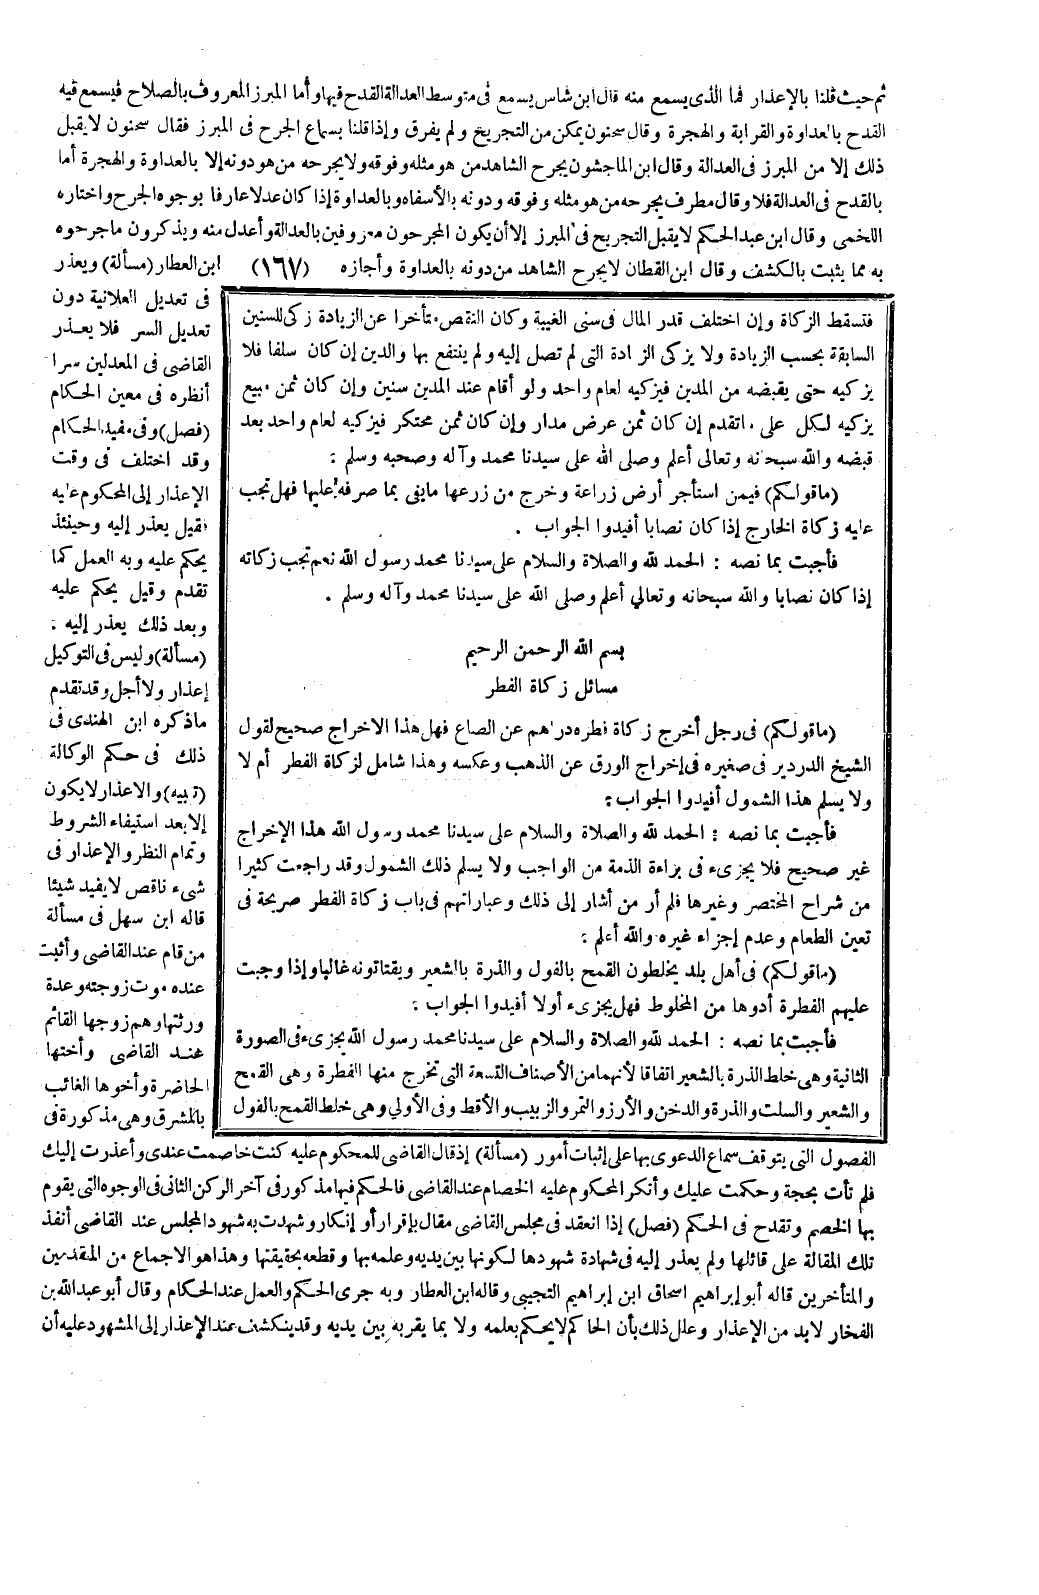 ثم حيث قلنا بالإعذار فما الذى يسمع منه قال ابن شاس يسمع فى متوسط العدالة القدح فيها وأما المبرز المعروف بالصلاح فيسمع فيه
القدح بالعداوة والقرابة والهجرة وقال سحنون يمكن من التجريح ولم يفرق وإذا قلنا بسماع الجرح فى المبرز فقال سحنون لا يقبل
ذلك إلا من المبرز فى العدالة وقال ابن الماجشون يجرح الشاهد من هو مثله وفوقه ولا يجرحه من هو دونه إلا بالعداوة والهجرة أما
بالقدح فى العدالة فلا وقال مطرف يجرحه من هو مثله وفوقه ودونه بالأسفاه وبالعداوة إذا كان عدلا عارفا بوجوه الجرح واختاره
اللخمى وقال ابن عبد الحكم لا يقبل التجريح فى المبرز إلا أن يكون المجرحون معروفين بالعدالة وأعدل منه ويذكرون ما جرحوه
به مما يثبت بالكشف وقال ابن القطان لا يجرح الشاهد من دونه بالعداوة وأجازه (١٦٧) ابن العطار (مسألة) ويعذر
فى تعديل العلانية دون
تعديل السر فلا يعذر
القاضى فى المعدلين سرا
أنظره فى معين الحكام
(فصل) وفى مفيد الحكام
وقد اختلف فى وقت
الإعذار إلى المحكوم عليه
فقيل يعذر إليه وحينئذ
يحكم عليه وبه العمل كما
تقدم وقيل يحكم عليه
وبعد ذلك يعذر إليه .
(مسألة) وليس فى التوكيل
إعذار ولا أجل وقد تقدم
ما ذكره ابن الهندى فى
ذلك فى حكم الوكالة
(تنبيه) والاعذار لا يكون
إلا بعد استيفاء الشروط
وتمام النظر والإعذار فى
شىء ناقص لا يفيد شيئا
قاله ابن سهل فى مسألة
من قام عند القاضى وأثبت
عنده موت زوجته وعدة
ورثتها وهم زوجها القائم
عند القاضى وأختها
الحاضرة وأخوها الغائب
بالمشرق وهى مذكورة فى
فتسقط الزكاة وإن اختلف قدر المال فى سنى الغيبة وكان النقص متأخرا عن الزيادة زكى للسنين
السابقة بحسب الزيادة ولا يزكى الزيادة التى لم تصل إليه ولم ينتفع بها والدين إن كان سلفا فلا
يزكيه حتى يقبضه من المدين فيزكيه لعام واحد ولو أقام عند المدين سنين وإن كان ثمن مبيع
يزكيه لكل على ما تقدم إن كان ثمن عرض مدار وإن كان ثمن محتكر فيزكيه لعام واحد بعد
قبضه والله سبحانه وتعالى أعلم وصلى الله على سيدنا محمد وآله وصحبه وسلم :
(ماقولكم) فيمن استأجر أرض زراعة وخرج من زرعها مايفى بما صرفه عليها فهل تجب
عليه زكاة الخارج إذا كان نصابا أفيدوا الجواب .
فأجبت بما نصه : الحمد لله والصلاة والسلام على سيدنا محمد رسول الله نعم تجب زكاته
إذا كان نصابا والله سبحانه وتعالى أعلم وصلى الله على سيدنا محمد وآله وسلم .
بسم الله الرحمن الرحيم
مسائل زكاة الفطر
(ماقولكم) فى رجل أخرج زكاة فطره دراهم عن الصاع فهل هذا الاخراج صحيح لقول
الشيخ الدردير فى صغيره فى إخراج الورق عن الذهب وعكسه وهذا شامل لزكاة الفطر أم لا
ولا يسلم هذا الشمول أفيدوا الجواب :
فأجبت بما نصه : الحمد لله والصلاة والسلام على سيدنا محمد رسول الله هذا الإخراج
غير صحيح فلا يجزىء فى براءة الذمة من الواجب ولا يسلم ذلك الشمول وقد راجعت كثيرا
من شراح المختصر وغيرها فلم أر من أشار إلى ذلك وعباراتهم فى باب زكاة الفطر صريحة فى
تعين الطعام وعدم إجزاء غيره والله أعلم :
(ماقولكم) فى أهل بلد يخلطون القمح بالفول والذرة بالشعير ويقتاتونه غالبا وإذا وجبت
عليهم الفطرة أدوها من المخلوط فهل يجزىء أولا أفيدوا الجواب .
فأجبت بما نصه : الحمد لله والصلاة والسلام على سيدنا محمد رسول الله يجزىء فى الصورة
الثانية وهى خلط الذرة بالشعير اتفاقا لأنهما من الأصناف التسعة التى تخرج منها الفطرة وهى القمح
والشعير والسلت والذرة والدخن والأرز والتمر والزبيب والأقط وفى الأولى وهى خلط القمح بالفول
الفصول التى يتوقف سماع الدعوى بها على إثبات أمور (مسألة) إذ قال القاضى للمحكوم عليه كنت خاصمت عندى وأعذرت إليك
فلم تأت بحجة وحكمت عليك وأنكر المحكوم عليه الخصام عند القاضى فالحكم فيها مذكور فى آخر الركن الثانى فى الوجوه التى يقوم
بها الخصم وتقدح فى الحكم (فصل) إذا انعقد فى مجلس القاضى مقال بإقرار أو إنكار وشهدت به شهود المجلس عند القاضى أنفذ
تلك المقالة على قائلها ولم يعذر إليه فى شهادة شهودها لكونها بين يديه وعلمه بها وقطعه بحقيقتها وهذا هو الاجماع من المتقدمين
والمتأخرين قاله أبو إبراهيم اسحاق ابن إبراهيم التجيبى وقاله ابن العطار وبه جرى الحكم والعمل عند الحكام وقال أبو عبد الله بن
الفخار لا بد من الإعذار وعلل ذلك بأن الحاكم لا يحكم بعلمه ولا بما يقر به بين يديه وقد ينكشف عند الإعذار إلى المشهود عليه أن